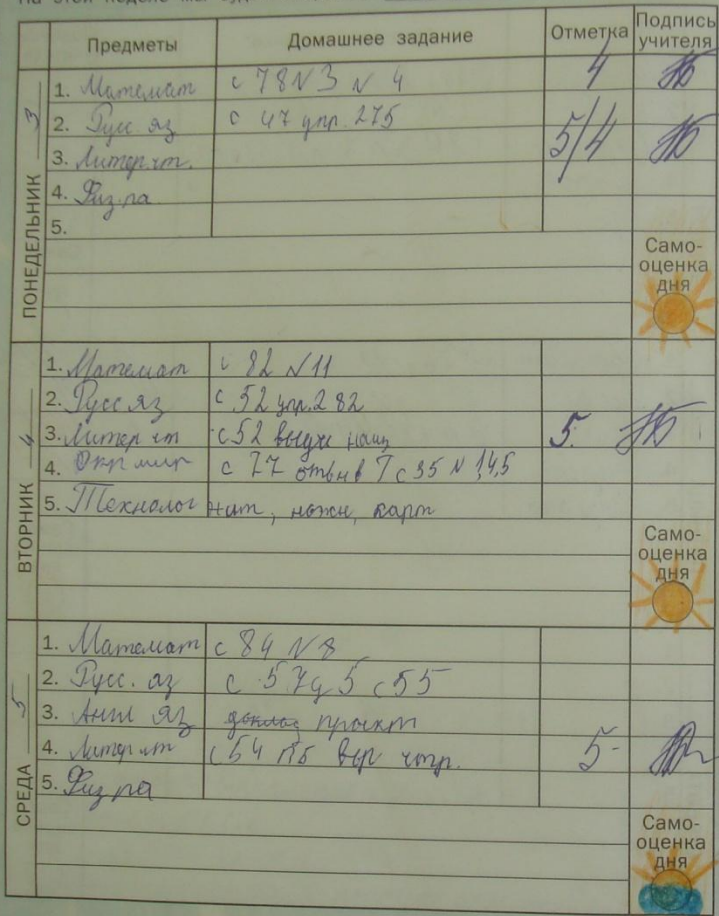 Предметы Домашнее задание Отметка Подпись учителя
ПОНЕДЕЛЬНИК 3
1. Математ с 78 N 3 N 4 4
2. Русс яз с 47 упр. 275
3. Литер.чт. 5/4
4. Физ-ра
5.
Само-
оценка
дня
ВТОРНИК 4
1. Математ с 82 N 11
2. Русс яз с 52 упр. 282
3. Литер чт с 52 5
4. Окр мир с 77 Т с 35 N 1,4,5
5. Технолог нит, ножн, карт
Само-
оценка
дня
СРЕДА 5
1. Математ с 84 N 8
2. Русс. яз с 57 с 55
3. Англ яз проект
4. Литер чт с 54 5-
5. Физ ра
Само-
оценка
дня